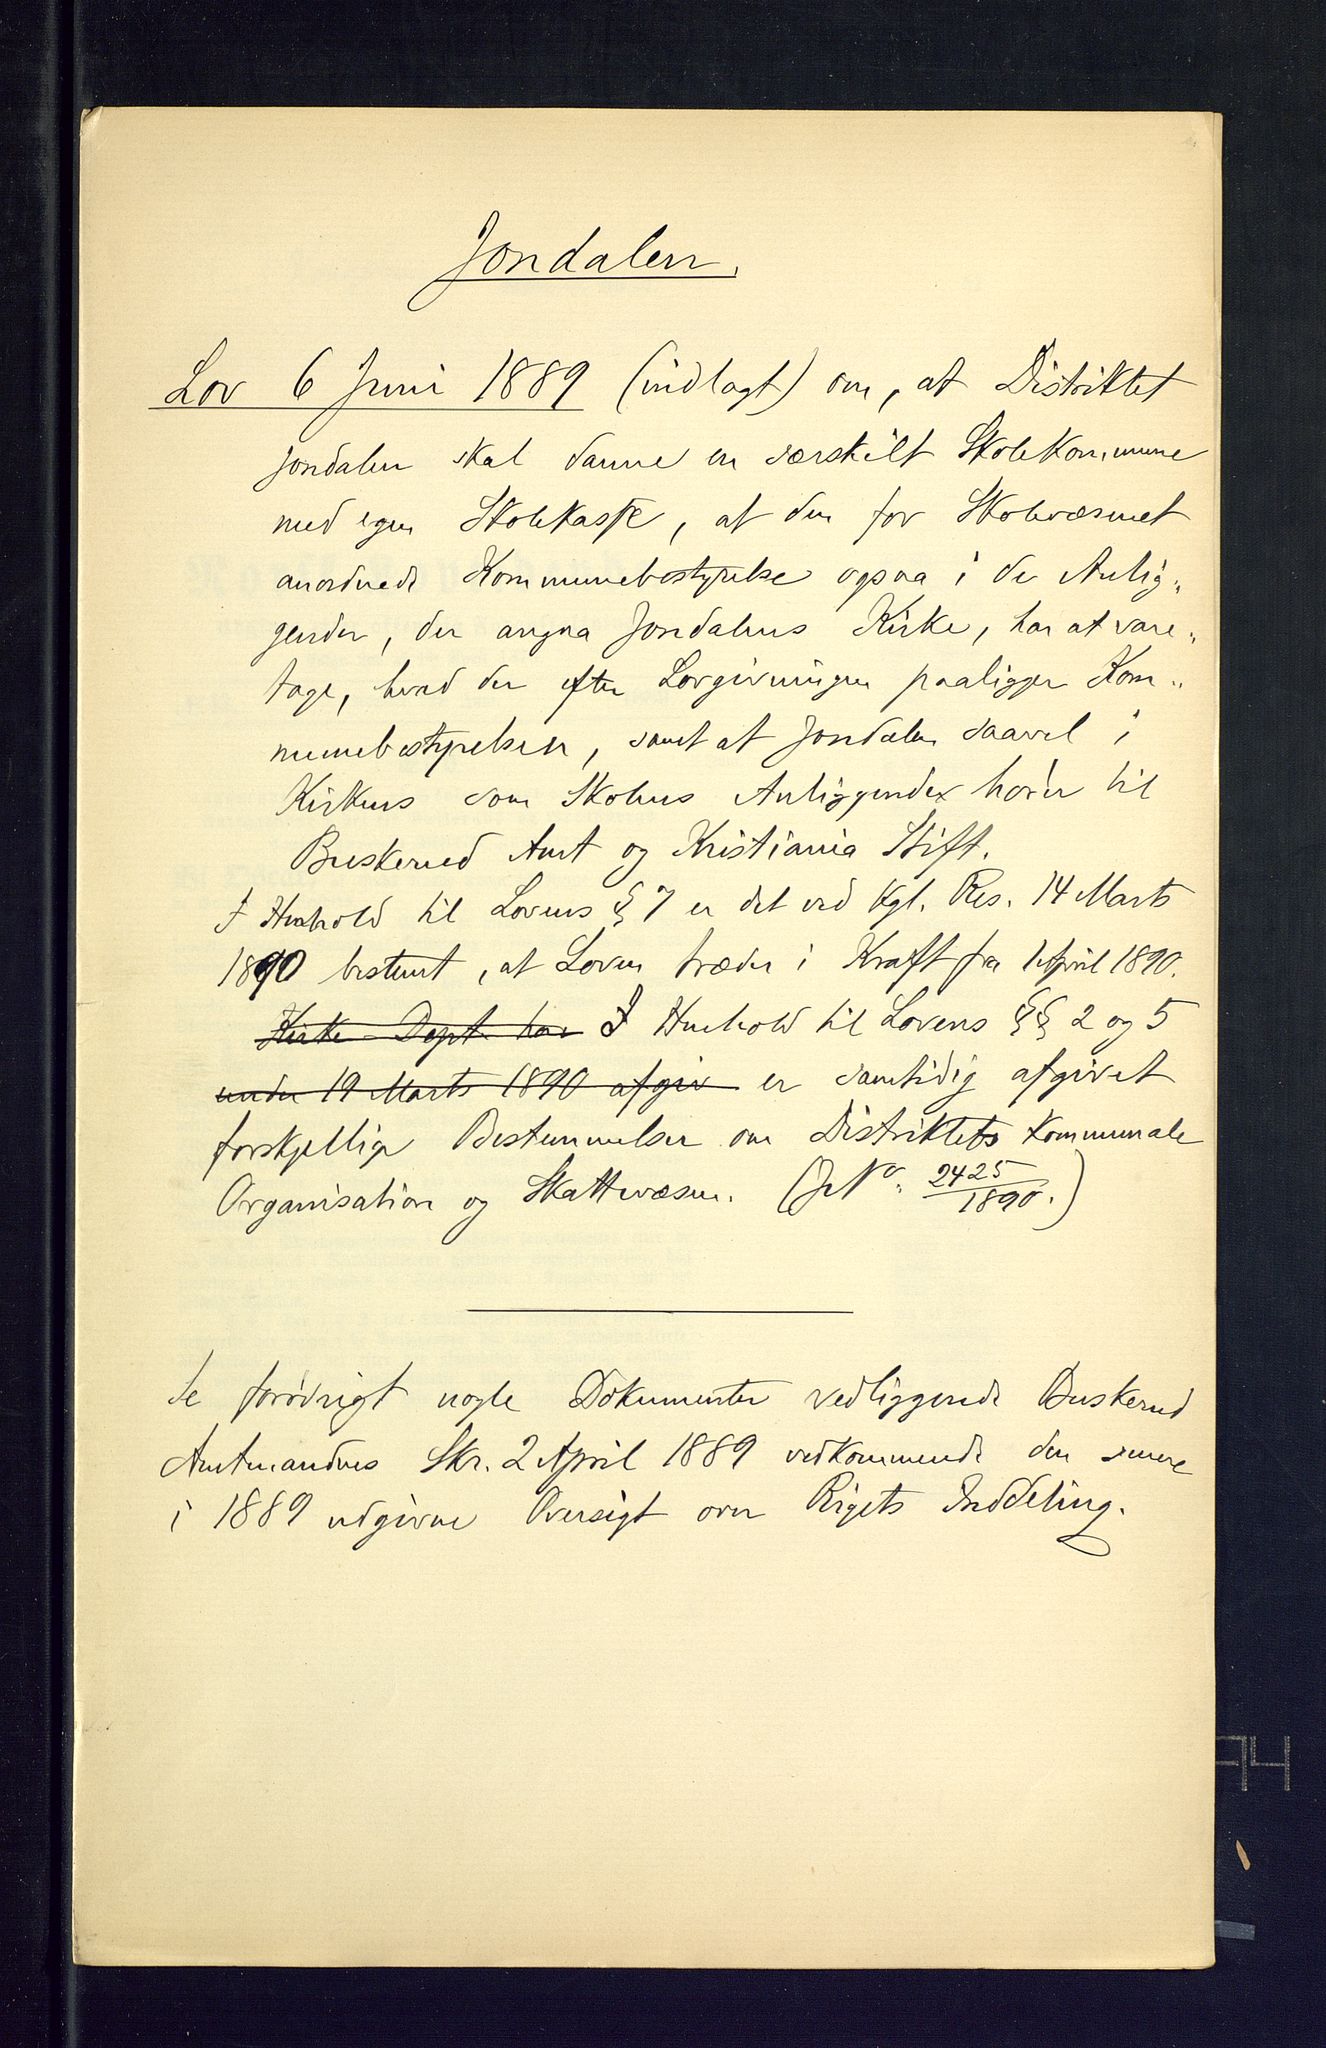 Jondalen.
Lov 6 Juni 1889 (indlagt) om, at Distriktet
Jondalen skal danne en særskilt Skolekommune
med egen Skolekasse, at den for Skolevæsenet
anordnede Kommunebestyrelse ogsaa i de Anlig-
gender, der angaa Jondalens Kirke, har at vare-
tage, hvad der efter Lovgivningen paaligger Kom-
munebestyrelsen, samt at Jondalen saavel i
Kirkens som Skolens Anliggender hører til
Buskerud Amt og Kristiania Stift.
I Henhold til Lovens § 7 er det ved Kgl. Res. 14 Marts
1890 bestemt, at Loven træder i Kraft fra 1 April 1890.
Kirke-Dept. har I Henhold til Lovens §§ 2 og 5
under 19 Marts 1890 afgiv er samtidig afgivet
forskjellige Bestemmelser om Distriktets kommunale
Organisation og Skattevæsen. (J. No. 2425/1890.)
Se forøvrigt nogle Dokumenter vedliggende Buskerud
Amtmandens Skr. 2 April 1889 vedkommende den senere
i 1889 udgivne Oversigt over Rigets Inddeling.